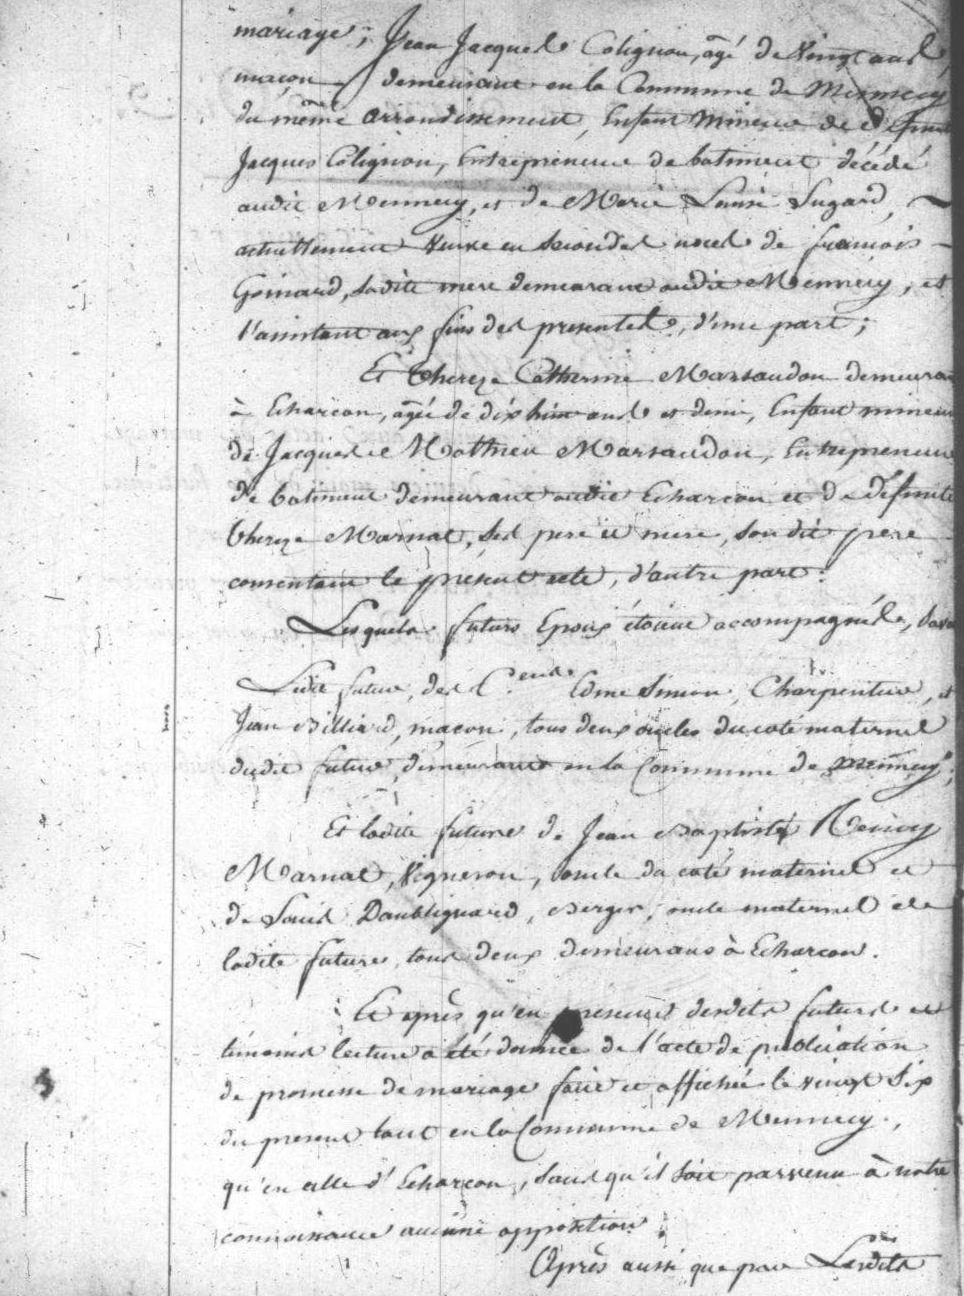 mariage; Jean Jacques Colignon, agé de Vingt ans,
maçon demeurant en la Commune de Mennecy
du même arrondissement, Enfant Mineur de défunt
Jacques Colignon, Entrepreneur de batiment décédé
audit Mennecy, et de Marie Louise Lugard,
actuellement Veuve en secondes noces de francois
Goinard, ladite mere demeurant audit Mennecy, et
l'assistant aux fins des presentes, d'une part;
Et Thereze Catherine Marsaudon demeurant
à Echarcon, agée de dix huit ans et demi, Enfant mineure
de Jacques Mathieu Marsaudon, Entrepreneur
de batiment demeurant audit Echarcon et de défunte
Thereze Marnat, ses pere et mere, son dit pere
consentant le présent acte, d'autre part.
Lesquels futurs Epoux étoient accompagnés, Savoir
Ledit futur, des C.ens Edme Simon, Charpentier, et
Jean Billiard, maçon, tous deux oncles du coté maternel
dudit futur, demeurans en la Commune de Mennecy;
Et ladite future de Jean Baptiste
Marnat, Vigneron, oncle du coté maternel et
de Louis Daubliguard, Berger, oncle maternel de
ladite future, tous deux demeurans à Echarcon.
Et après qu'en presence desdits futurs et
témoins lecture a été donnée de l'acte de publication
de promesse de mariage faite et affichée le vingt Six
du present tant en la Commune de Mennecy,
qu'en celle d'Echarcon, sans qu'il soit parvenu à notre
connoissance aucune opposition.
Après aussi que par Lesdits